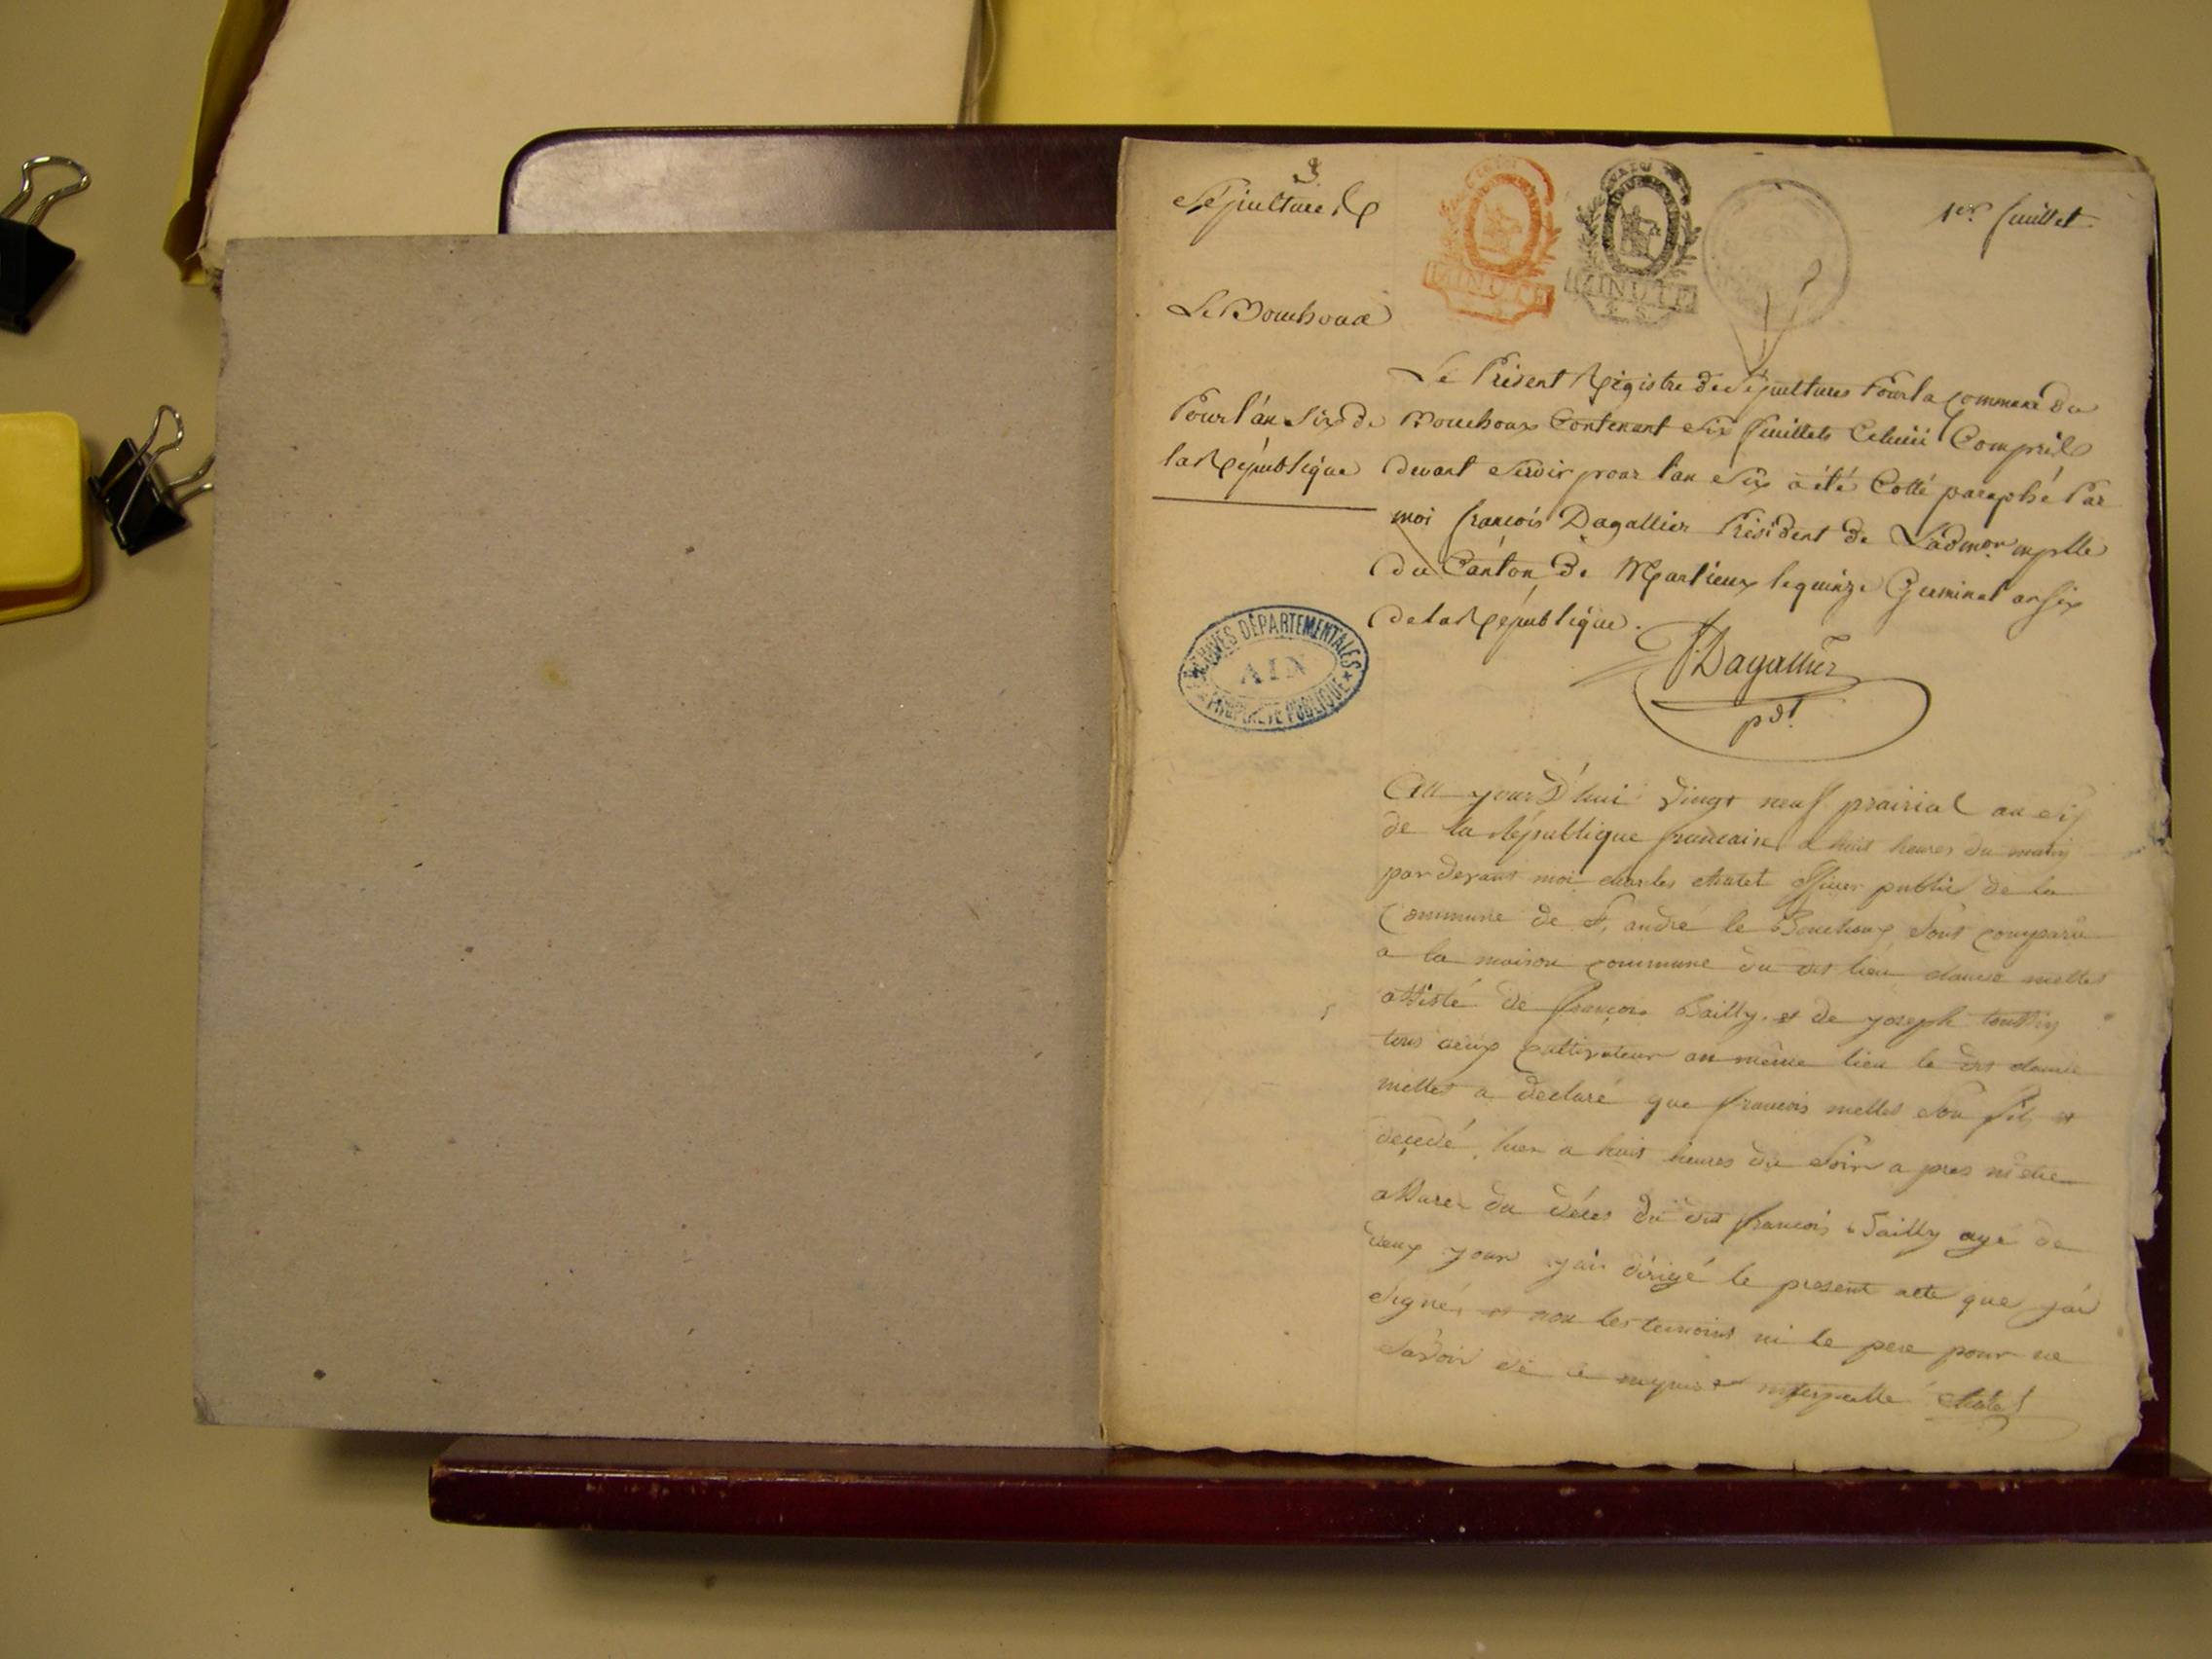 3
Sépultures
1er feuillet
MINUTE
MINUTE
Le Bouchoux
Pour l'an Six de
la République
Le Présent Régistre de Sépultures Pour la Commune du
Bouchoux Contenant Six feuillets Celuici Compris
devant Servir pour l'an Six a été Cotté paraphé Par
moi françois Dagallier Président de L'adm.on mp.lle
du Canton de le quinze Germinal an Six
de la République.
Dagallier
pdt
ARCHIVES DÉPARTEMENTALES
AIN
PROPRIÉTÉ PUBLIQUE
Au jourd'hui vingt neuf prairial an six
de la République francaise a huit heures du matin
par devant moi charles chatel officier public de la
Commune de St andré le Bouchoux sont comparu
a la maison commune du dit lieu mellet
assisté de françois Bailly et de joseph
tous deux Cultivateur au même lieu le dit
mellet a declaré que francois mellet son fils et
decedé hier a huit heures du Soir a pres
assurer du décès du dit francois Bailly agé de
deux jour j'ai dirigé le present acte que j'ai
Signé, et non les temoins ni le pere pour ne
Savoir de ce requis et chatel